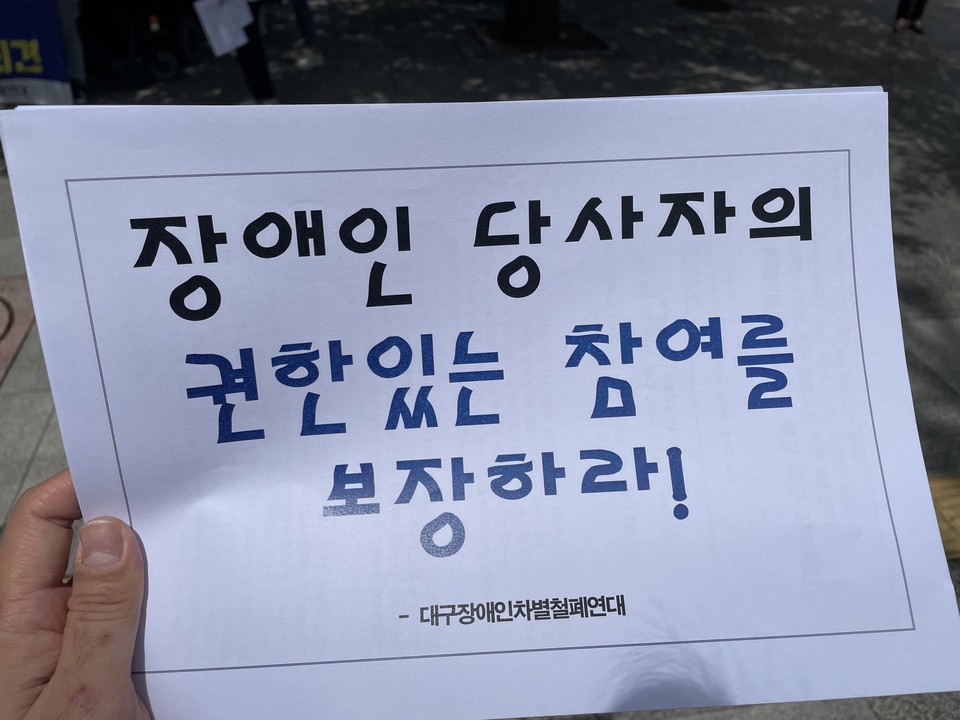 장애인 당사자의
권한있는 참여를
보장하라!
- 대구장애인차별철폐연대